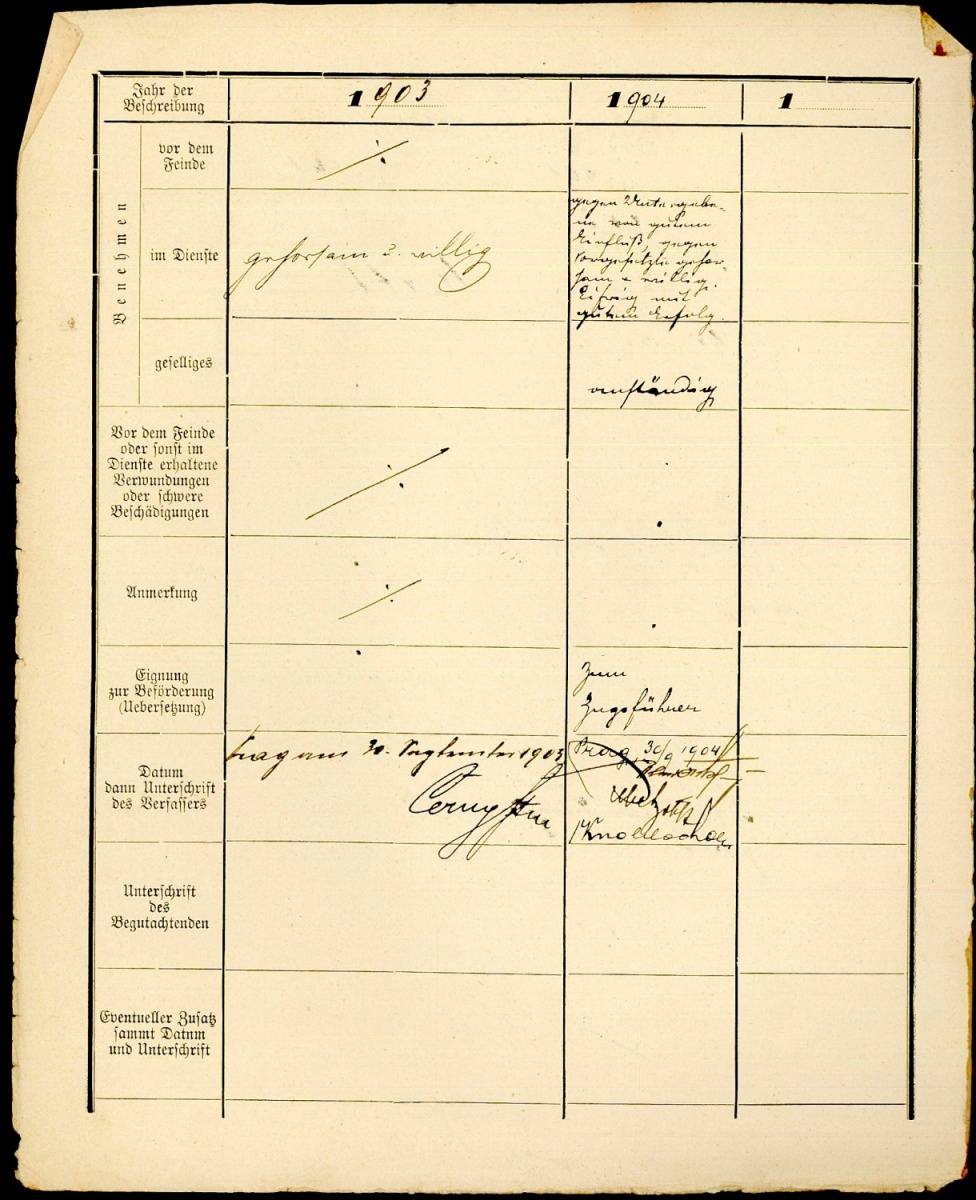 Jahr der
Beschreibung
1903
1904
1
Benehmen
vor dem
Feinde
im Dienste
gehorsam u. willig
gegen Untergebe-
ne von gutem
Einfluß, gegen
Vorgesetzte gehor-
sam u. willig.
Eifrig mit
gutem Erfolg.
geselliges
anständig
Vor dem Feinde
oder sonst im
Dienste erhaltene
Verwundungen
oder schwere
Beschädigungen
Anmerkung
Eignung
zur Beförderung
(Uebersetzung)
Zum
Zugsführer
Datum
dann Unterschrift
des Verfassers
Prag am 30. September 1903
Cerny
Prag 30/9 1904
Unterschrift
des
Begutachtenden
Eventueller Zusatz
sammt Datum
und Unterschrift